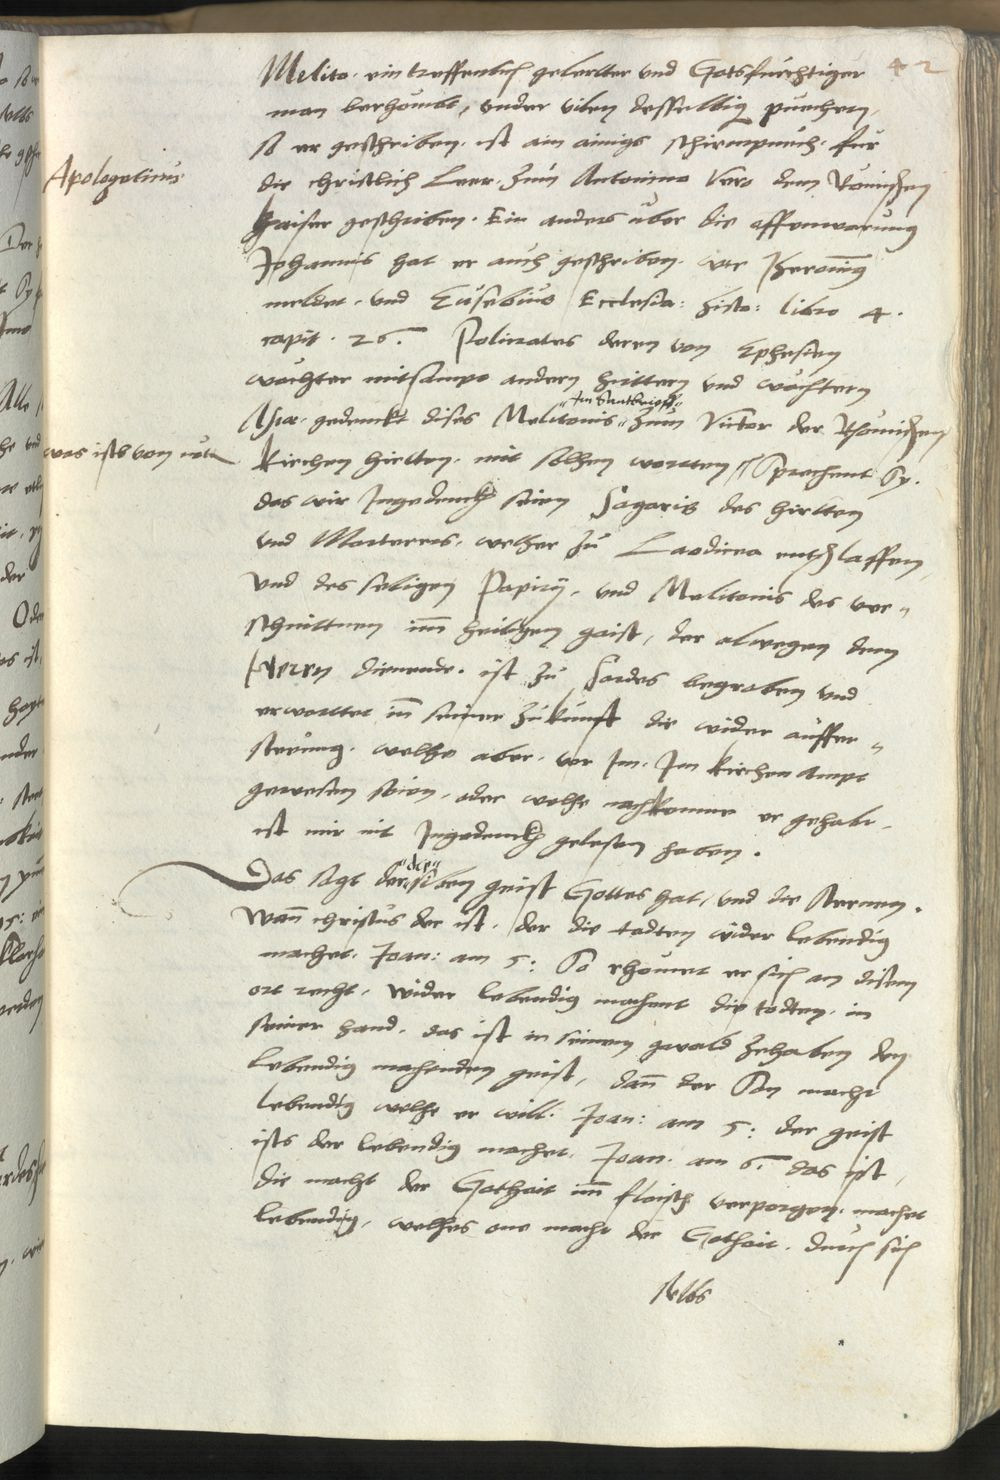 42
Melito. ein treffenlich gelertter und Gotsfurchtiger
man berhoumbt, under vilen desselbig puechern,
so er geschriben. ist ain ainigs schirmpuuch. fur
Apologeticus
die christlich Leer. zum Antonino Vero dem Romischen
Kaiser geschriben. Ein anders uber die offenwarung
Johannis hat er auch geschriben. wie
meldet. und Eusebius Ecclesia: histo: libro 4.
capit. 26. Policrates deren von Ephesien
wachter mitsampt andern hirttern und wachtern
Asia. gedenckt dises Melitonis zum Victor der Rhomischen
was ists von
kirchen hirtten. mit solhen wortten Sprechent Sy.
das wir Ingedenckh seien Sagaris des hirtten
und Marterers. welher zu Laodicea entschlaffen,
und des seligen Papirij. und Melitonis des ver-
schnittnen im heilichen gaist, der alwegen dem
Herrn dienende. ist zu Sardes begraben und
erwarttet in seiner zukunft die wider auffer-
steeung. welhe aber. vor Im. Im kirchen ampt
gewesen seien. oder welhe nachkomne er gehabt.
ist mir nit Ingedenckh gelesen haben.
Das sagt der "die" siben geist Gottes hat, und die sternen.
Wann christus der ist. der die todten wider lebendig
machet. Joan: am 5: So rhoumt er sich an disem
ort recht. wider lebendig machent die todten. in
seiner hand. das ist in seinem gwald zehaben den
lebendig machenden geist, dann der Son macht
lebendig welhe er will. Joan: am 5: der geist
ists der lebendig machet. Joan. am 6. das ist,
die macht der Gothait im flaisch verporgen. machet
lebendig, welhes one macht der Gothait. durch sich
selbs